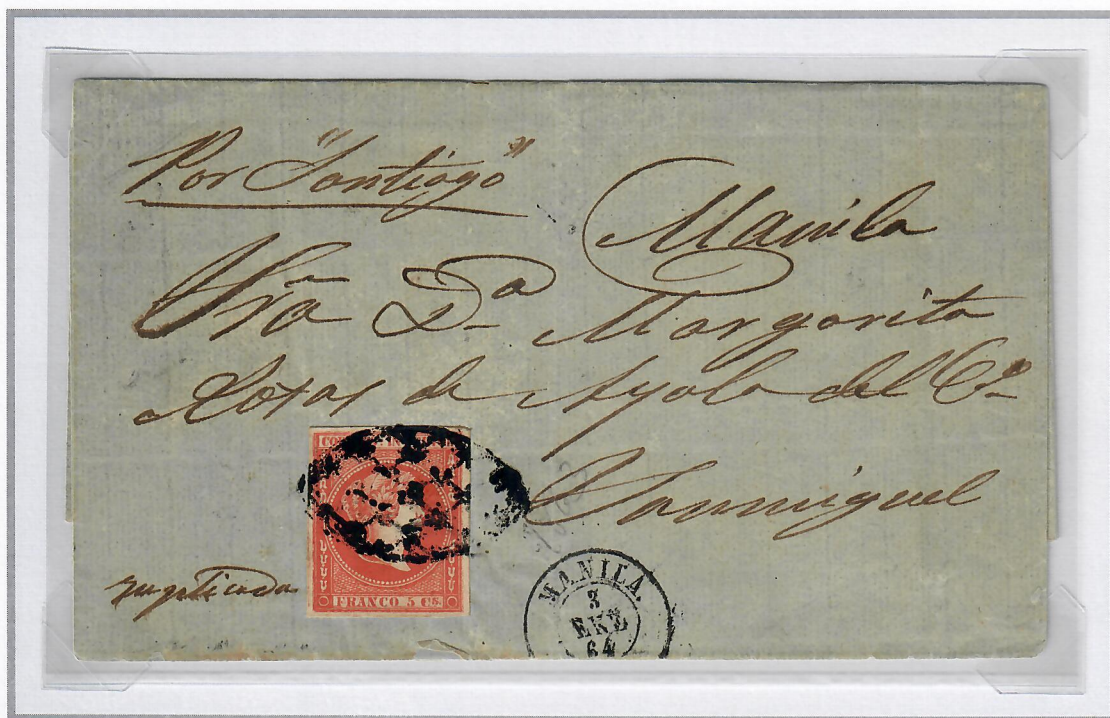 Por "Santiago"
Manila
Sra Da Margarita
Roxas de Ayala del Co
Sanmiguel
suplicada
CO
FRANCO 5 Cs.
MANILA.
3
ENE
64